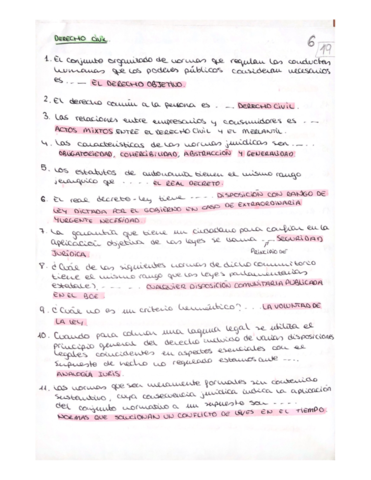 DERECHO CIVIL
6
19
1. El conjunto organizado de normas que regulan las conductas
humanas que los poderes públicos consideran necesarios
es .... EL DERECHO OBJETIVO.
2. El derecho común a la persona es ... DERECHO CIVIL.
3. Las relaciones entre empresarios y consumidores es ...
ACTOS MIXTOS ENTRE EL DERECHO CIVIL Y EL MERCANTIL.
4. Las características de las normas jurídicas son ....
OBLIGATOIEDAD, COHERCIBILIDAD, ABSTRACCIÓN Y GENERALIDAD.
5. Los estatutos de autonomía tienen el mismo rango
jerárquico que .... EL REAL DECRETO.
6. El real decreto-ley tiene .... DISPOSICIÓN CON RANGO DE
LEY DICTADA POR EL GOBIERNO EN CASO DE EXTRAORDINARIA
Y URGENTE NECESIDAD.
7. La garantía que tiene un ciudadano para confiar en la
aplicación objetiva de las leyes se llama ... SEGURIDAD
JURÍDICA.
8. ¿Cuál de las siguientes normas de dicho comunitario
tiene el mismo rango que las leyes parlamentarias
estatales? .... CUALQUIER DISPOSICIÓN COMUNITARIA PUBLICADA
EN EL BOE.
9. ¿Cuál no es un criterio hermenéutico? ... LA VOLUNTAD DE
LA LEY.
10. Cuando para colmar una laguna legal se utiliza el
principio general del derecho de varias disposiciones
legales coincidentes en aspectos esenciales con el
supuesto de hecho no regulado estamos ante ....
ANALOGÍA IURIS.
11. Las normas que son meramente formales sin contenido
sustantivo, cuya consecuencia jurídica indica la aplicación
del conjunto normativo a un supuesto son ....
NORMAS QUE SOLUCIONAN UN CONFLICTO DE LEYES EN EL TIEMPO.